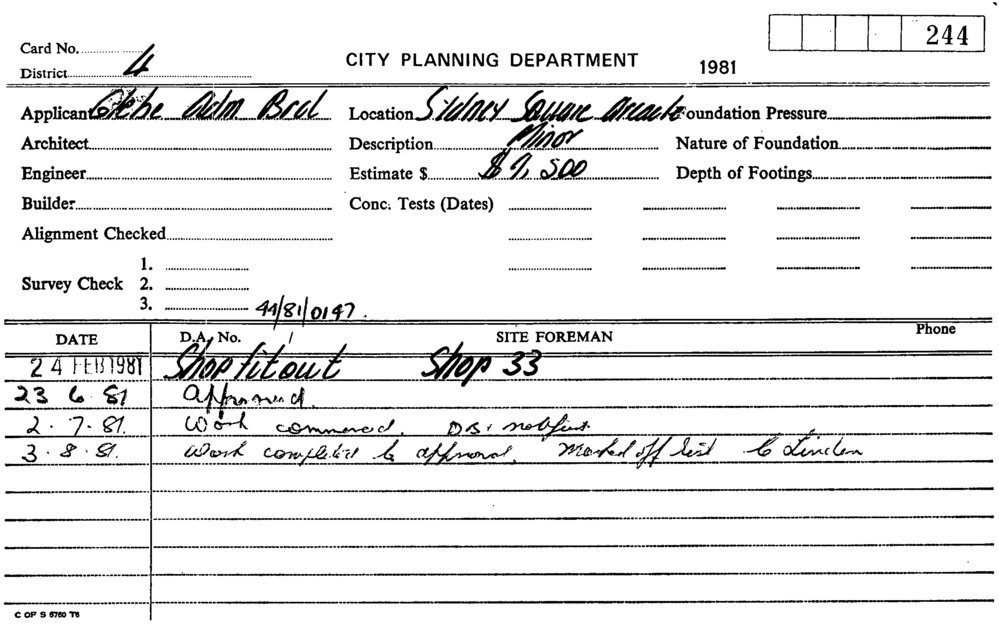 244
Card No.
CITY PLANNING DEPARTMENT
1981
District 4
Applicant Glebe Adm Brd Location Sydney Square Arcade Foundation Pressure
Architect Description Minor Nature of Foundation
Engineer Estimate $ $ 9,500 Depth of Footings
Builder Conc. Tests (Dates)
Alignment Checked
1.
Survey Check 2.
3.
44/81/0147.
DATE D.A. No. SITE FOREMAN Phone
24 FEB 1981 Shop fitout Shop 33
23 6 81 Approved.
2.7.81. Work commenced. notified.
3.8.81. Work completed to approval. Marked off list
C OF S 6760 T8